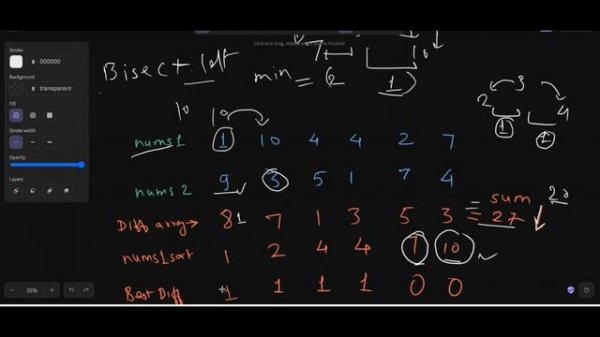 Click and drag, release when you're finished
Stroke
# 000000
Background
# transparent
Fill
Stroke width
Opacity
Layers
55%
7 10
Bisect.left min = (2 1)
3
2 4
1 1
10 10
nums1 1 10 4 4 2 7
nums2 9 3 5 1 7 4
= sum 22
Diff array→ 8 1 7 1 3 5 3 = 27
nums1sort 1 2 4 4 7 10
Best Diff 1 1 1 1 0 0